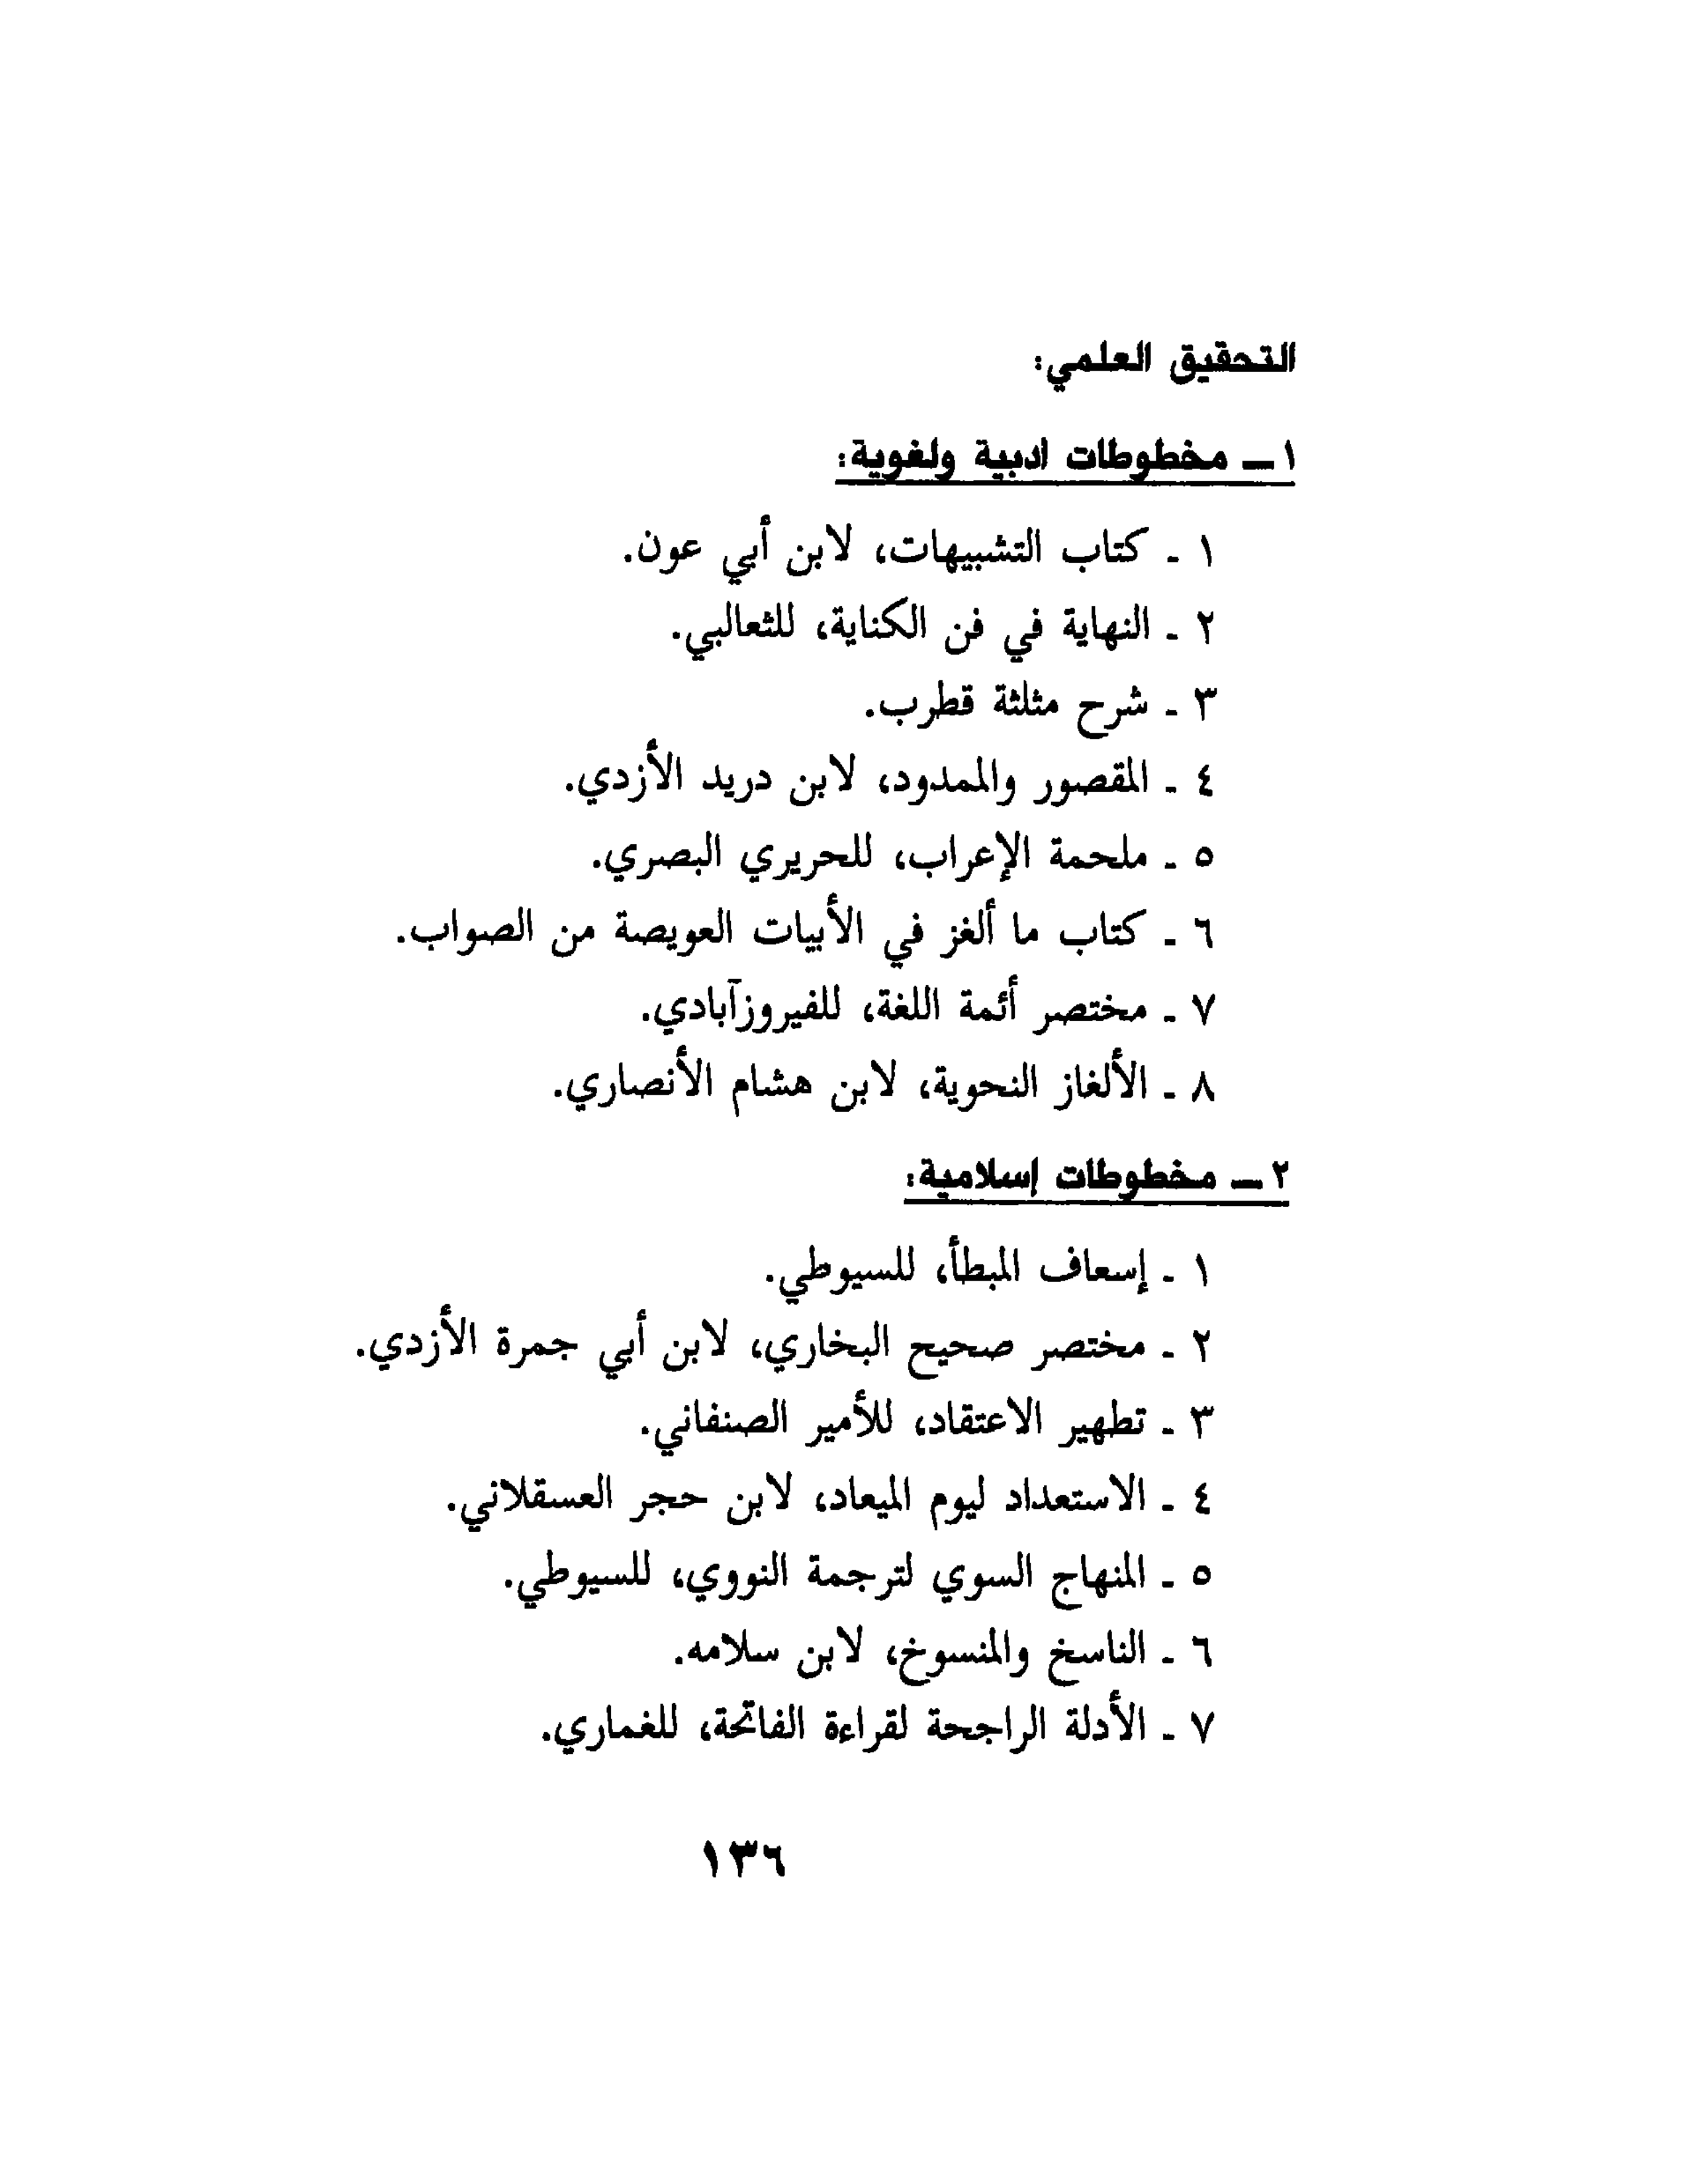 التحقيق العلمي:
١ ـ مخطوطات ادبية ولغوية:
١ ـ كتاب التشبيهات، لابن أبي عون.
٢ ـ النهاية في فن الكناية، للثعالبي.
٣ ـ شرح مثلثة قطرب.
٤ ـ المقصور والممدود، لابن دريد الأزدي.
٥ ـ ملحمة الإعراب، للحريري البصري.
٦ ـ كتاب ما ألغز في الأبيات العويصة من الصواب.
٧ ـ مختصر أئمة اللغة، للفيروزآبادي.
٨ ـ الألغاز النحوية، لابن هشام الأنصاري.
٢ ـ مخطوطات إسلامية:
١ ـ إسعاف المبطأ، للسيوطي.
٢ ـ مختصر صحيح البخاري، لابن أبي جمرة الأزدي.
٣ ـ تطهير الاعتقاد، للأمير الصنفاني.
٤ ـ الاستعداد ليوم الميعاد، لابن حجر العسقلاني.
٥ ـ المنهاج السوي لترجمة النووي، للسيوطي.
٦ ـ الناسخ والمنسوخ، لابن سلامه.
٧ ـ الأدلة الراجحة لقراءة الفاتحة، للغماري.
١٣٦